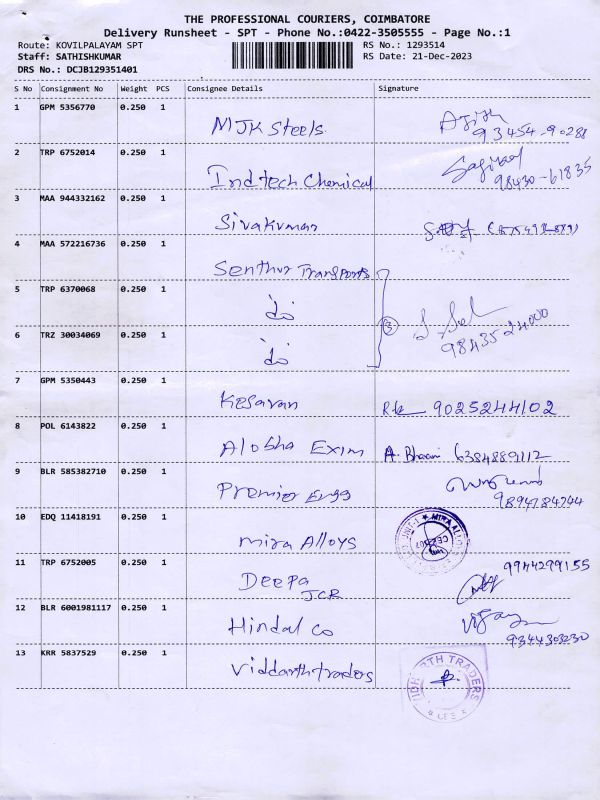 THE PROFESSIONAL COURIERS, COIMBATORE
Delivery Runsheet - SPT - Phone No.:0422-3505555 - Page No.:1
Route: KOVILPALAYAM SPT
Staff: SATHISHKUMAR
DRS No.: DCJB129351401
RS No.: 1293514
RS Date: 21-Dec-2023
S No Consignment No Weight PCS Consignee Details Signature
1 GPM 5356770 0.250 1 MJK Steels 93454-90288
2 TRP 6752014 0.250 1 Indtech Chemical 98430-61835
3 MAA 944332162 0.250 1 Sivakumar
4 MAA 572216736 0.250 1 Senthur Transports
5 TRP 6370068 0.250 1 do
3 9843524000
6 TRZ 30034069 0.250 1 do
7 GPM 5350443 0.250 1 Kesavan 9025244102
8 POL 6143822 0.250 1 Alobha Exim A. Bhaari 6384889112
9 BLR 585382710 0.250 1 Premier Engg 9894784744
10 EDQ 11418191 0.250 1 Mira Alloys
11 TRP 6752005 0.250 1 Deepa 9944299155
JCR
12 BLR 6001981117 0.250 1 Hindal co Vijay
9344303230
13 KRR 5837529 0.250 1 Viddarth traders
TRADERS
CBE